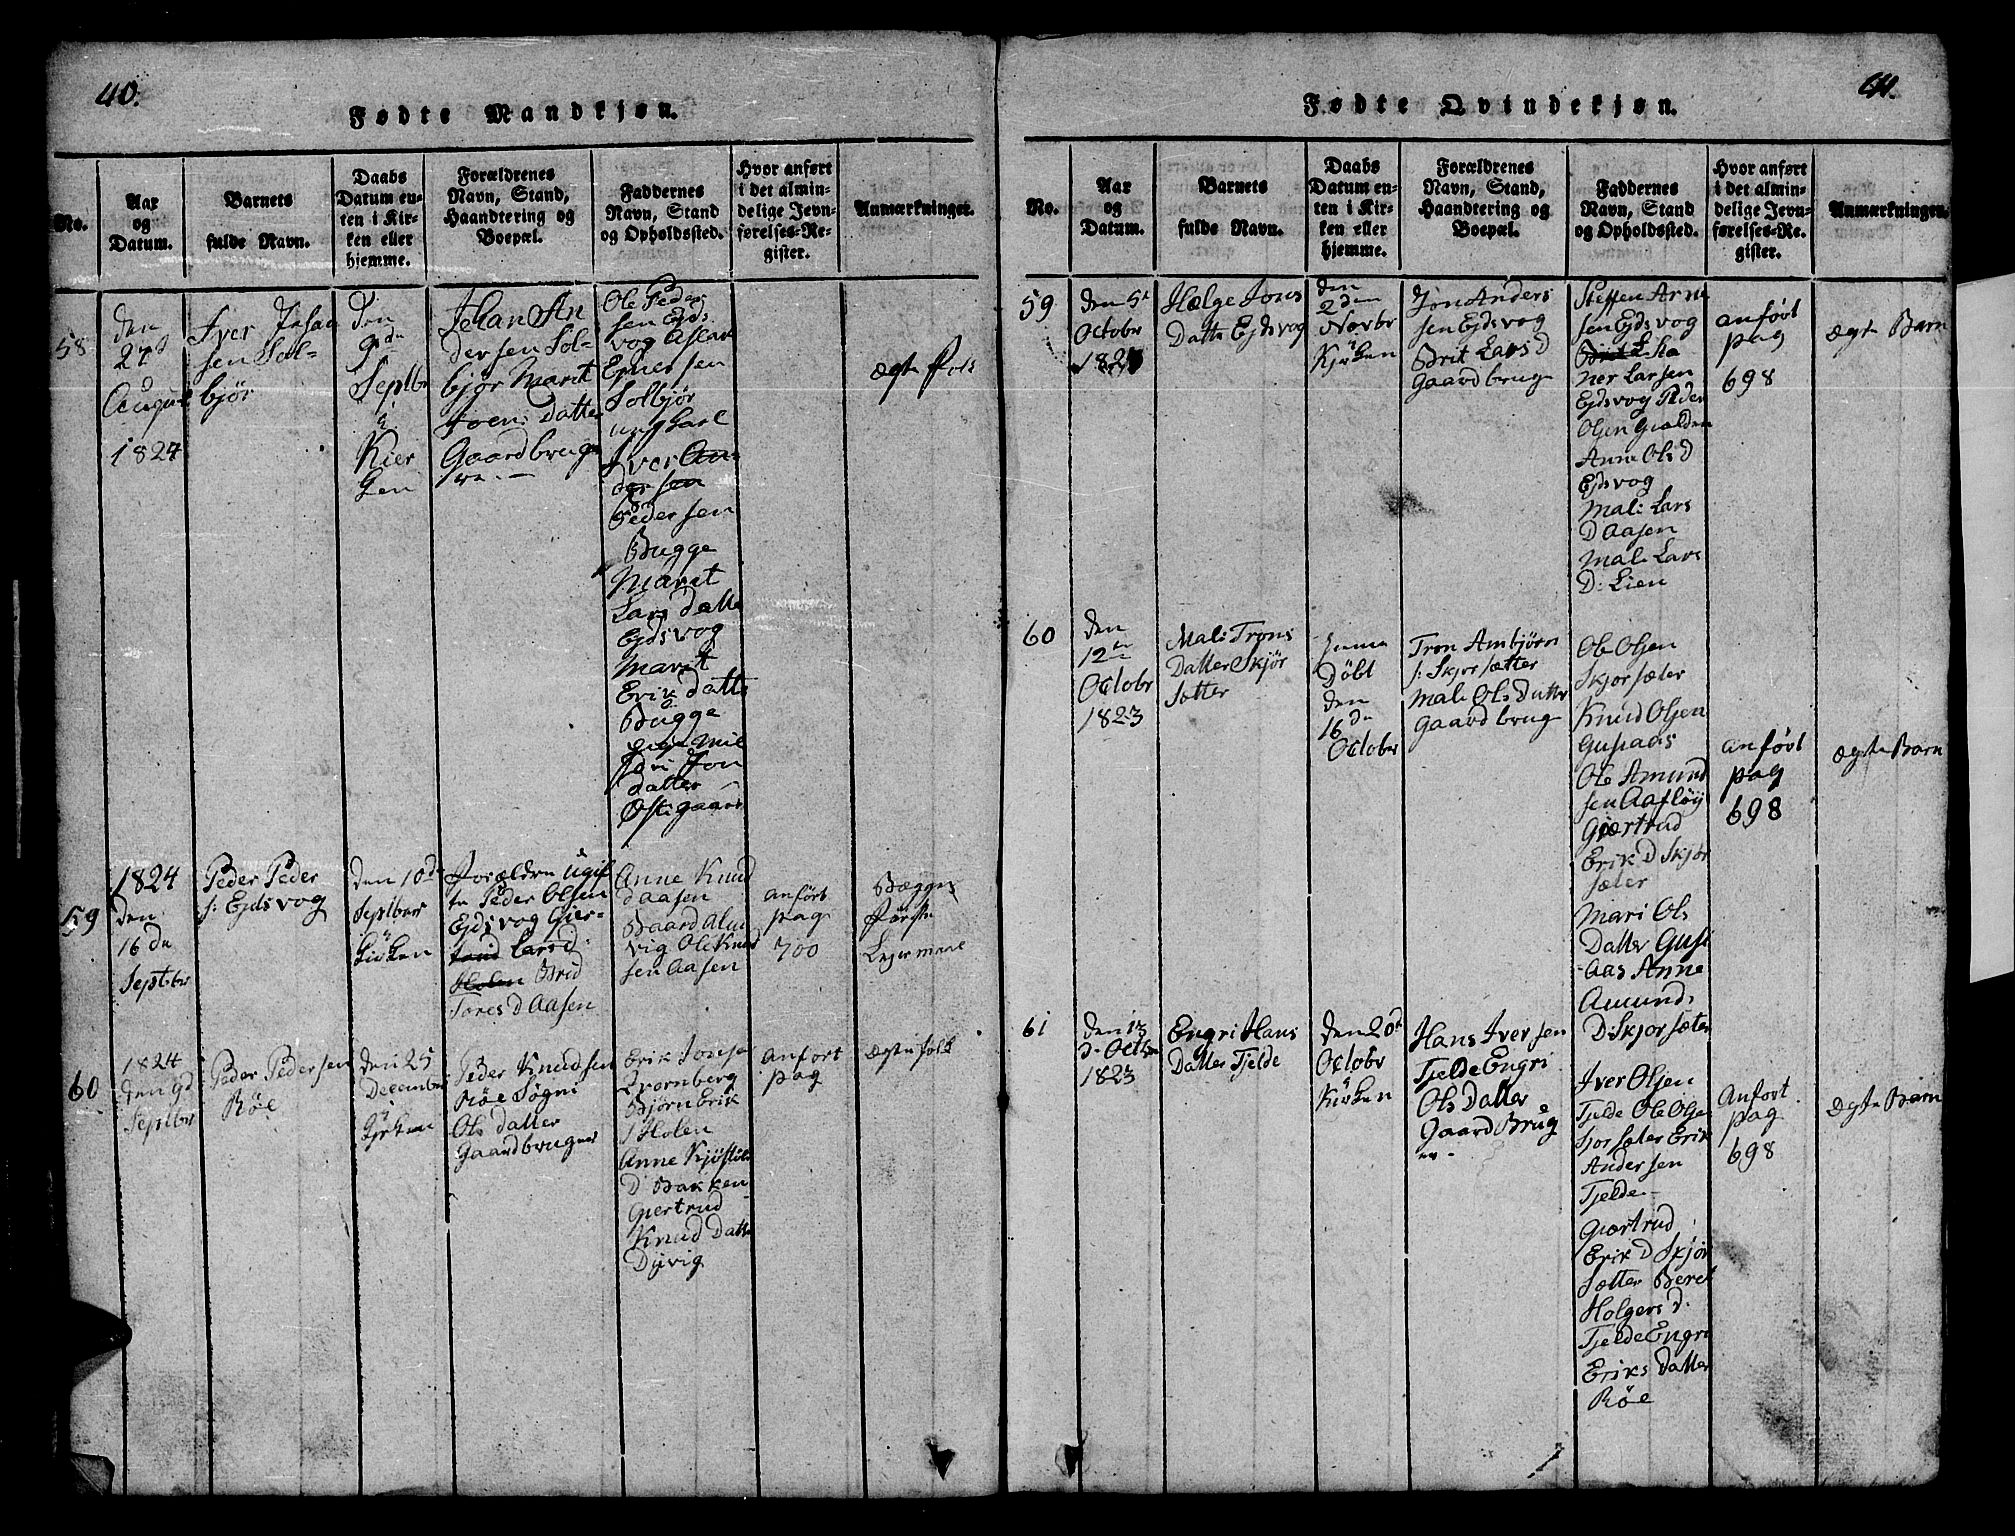 40.
Fødte Mandkjøn.
No.
Aar og Datum.
Barnets fulde Navn.
Daabs Datum enten i Kirken eller hjemme.
Forældrenes Navn, Stand, Haandtering og Boepæl.
Faddernes Navn, Stand og Opholdssted.
Hvor anført i det almindelige Jevnførelses-Register.
Anmærkninger.
58
den
27
August
1824
Iver
sen Sol-
bjør
den
9de
Septbr
i
Kier
Johan An
dersen Sol-
bjør Marit
Joens Datter
Gaardbruge
Ole Peder
sen Ejds
vog Aslak
Ejnersen
Solbjør
ungkarl
Iver An
der sen
Pedersen
Bugge
Marit
Lars Datter
Ejdsvog
Marit
Erik Datter
Bugge
pige
Jon
datter
Østigaard
ægte Folk
59
1824
den
16 de
Septbr
Peder Peder
s: Ejdsvog
den 10de
Septber
i
Kirken
Forældre Ugif
te Peder Olsen
Ejdsvog Gier-
trud Lars d:
Holen Brid
Tores D Aasen
Anne Knud
d Aasen
Baard
vig Ole Knud
sen Aasen
anført
pag
700
Bægges
Første
Lejermaal
60
1824
den 9d
Septbr
Peder Pedersen
Røe
den 25
December
i
Peder Knudsen
Røe Søgni
Ols datter
Gaardbruger
Erik
Bjørn Erik
s Holen
Anne
D Bakken
Giertrud
Knud Datter
Dyvig
Anført
pag
ægte folk
41.
Fødte Qvindekjøn.
No.
Aar og Datum.
Barnets fulde Navn.
Daabs Datum enten i Kirken eller hjemme.
Forældrenes Navn, Stand, Haandtering og Boepæl.
Faddernes Navn, Stand og Opholdssted.
Hvor anført i det almindelige Jevnførelses-Register.
Anmærkninger.
59
den 5t
Octobr
Hælge Jons
Datter Ejdsvog
den
2den
Novbr
i
Kirken
Jon Anders
sen Ejdsvog
Brit Lars D
Gaardbrug
Steffen Arne
sen Ejdsvog
ner Larsen
Ejdsvog Peder
Olsen
Anne Ols D
Ejdsvog
Mali Lars
D Aasen
Mali Lars
D: Lien
anført
pag
698
ægte Barn
60
den
12te
Octobr
1823
Mali Trons
Datter Skjør
sætter
Døbt
den
16 de
October
Tron Ambjørn
s: Skjorsætter
Mali Ols Datter
Gaardbrug
Ole Olsen
Skjorsæter
Knud Olsen
Gusiaas
Ole Amund
sen Aafløy
Giærtrud
Erik D Skjør
sæter
Mari Ols
Datter Gusi
aas Anne
Amunds
D: Skjorsæter
anført
pag
698
ægte Barn
61
den 13
d. Octbr
1823
Engri Hans
Datter Tjelde
den 20de
Octobr
i
Kirken
Hans Iversen
Tjelde Engri
Ols Datter
Gaard Brug
er-
Iver Olsen
Tjelde Ole Olse
Sjorsæter Erik
Andersen
Tjelde-
Giærtrud
Erik D Skjør
sætter Beret
Holgers D:
Tjelde Engri
Eriks Datter
Røe
Anført
pag
698
ægte Barn